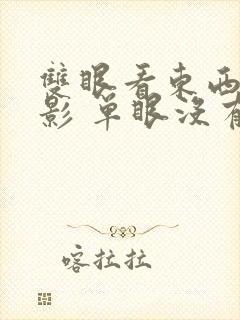 雙眼看東西
影 單眼沒有
喀拉拉